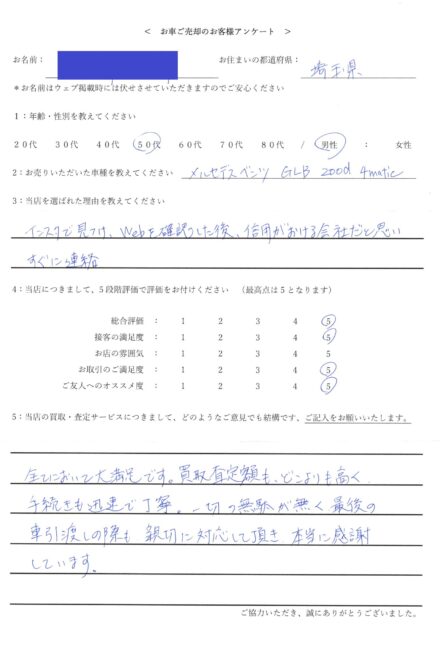 ＜　お車ご売却のお客様アンケート　＞
お名前：　お住まいの都道府県：　埼玉県
＊お名前はウェブ掲載時には伏せさせていただきますのでご安心ください
1：年齢・性別を教えてください
20代　30代　40代　50代　60代　70代　80代　/　男性　：　女性
2：お売りいただいた車種を教えてください　メルセデスベンツ GLB 200d 4matic
3：当店を選ばれた理由を教えてください
インスタで見つけ、Webを確認した後、信用がおける会社だと思い
すぐに連絡
4：当店につきまして、5段階評価で評価をお付けください　（最高点は5となります）
総合評価　：　1　2　3　4　5
接客の満足度　：　1　2　3　4　5
お店の雰囲気　：　1　2　3　4　5
お取引のご満足度　：　1　2　3　4　5
ご友人へのオススメ度　：　1　2　3　4　5
5：当店の買取・査定サービスにつきまして、どのようなご意見でも結構です、ご記入をお願いいたします。
全てにおいて大満足です。買取査定額も、どこよりも高く
手続きも迅速で丁寧。一切の無駄が無く最後の
車引渡しの際も親切に対応して頂き本当に感謝
しています。
ご協力いただき、誠にありがとうございました。